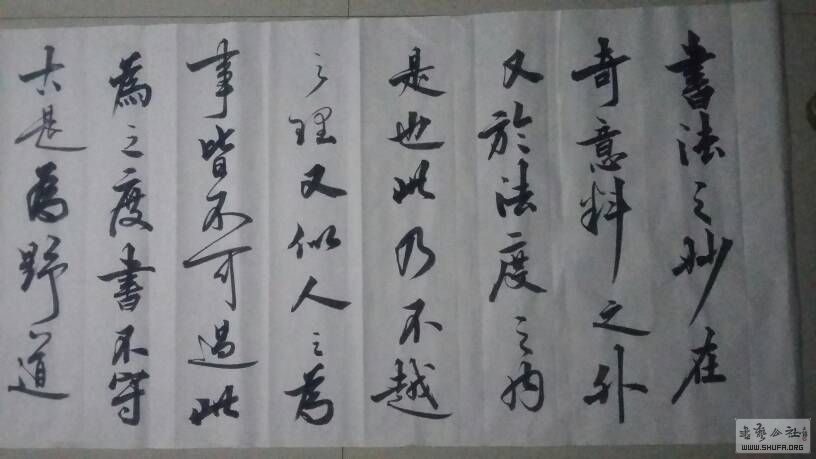 書法之妙在
奇意料之外
又於法度之內
是也此乃不越
之理又似人之為
事皆不可過此
為之度書不守
古是為野道
书艺公社
WWW.SHUFA.ORG